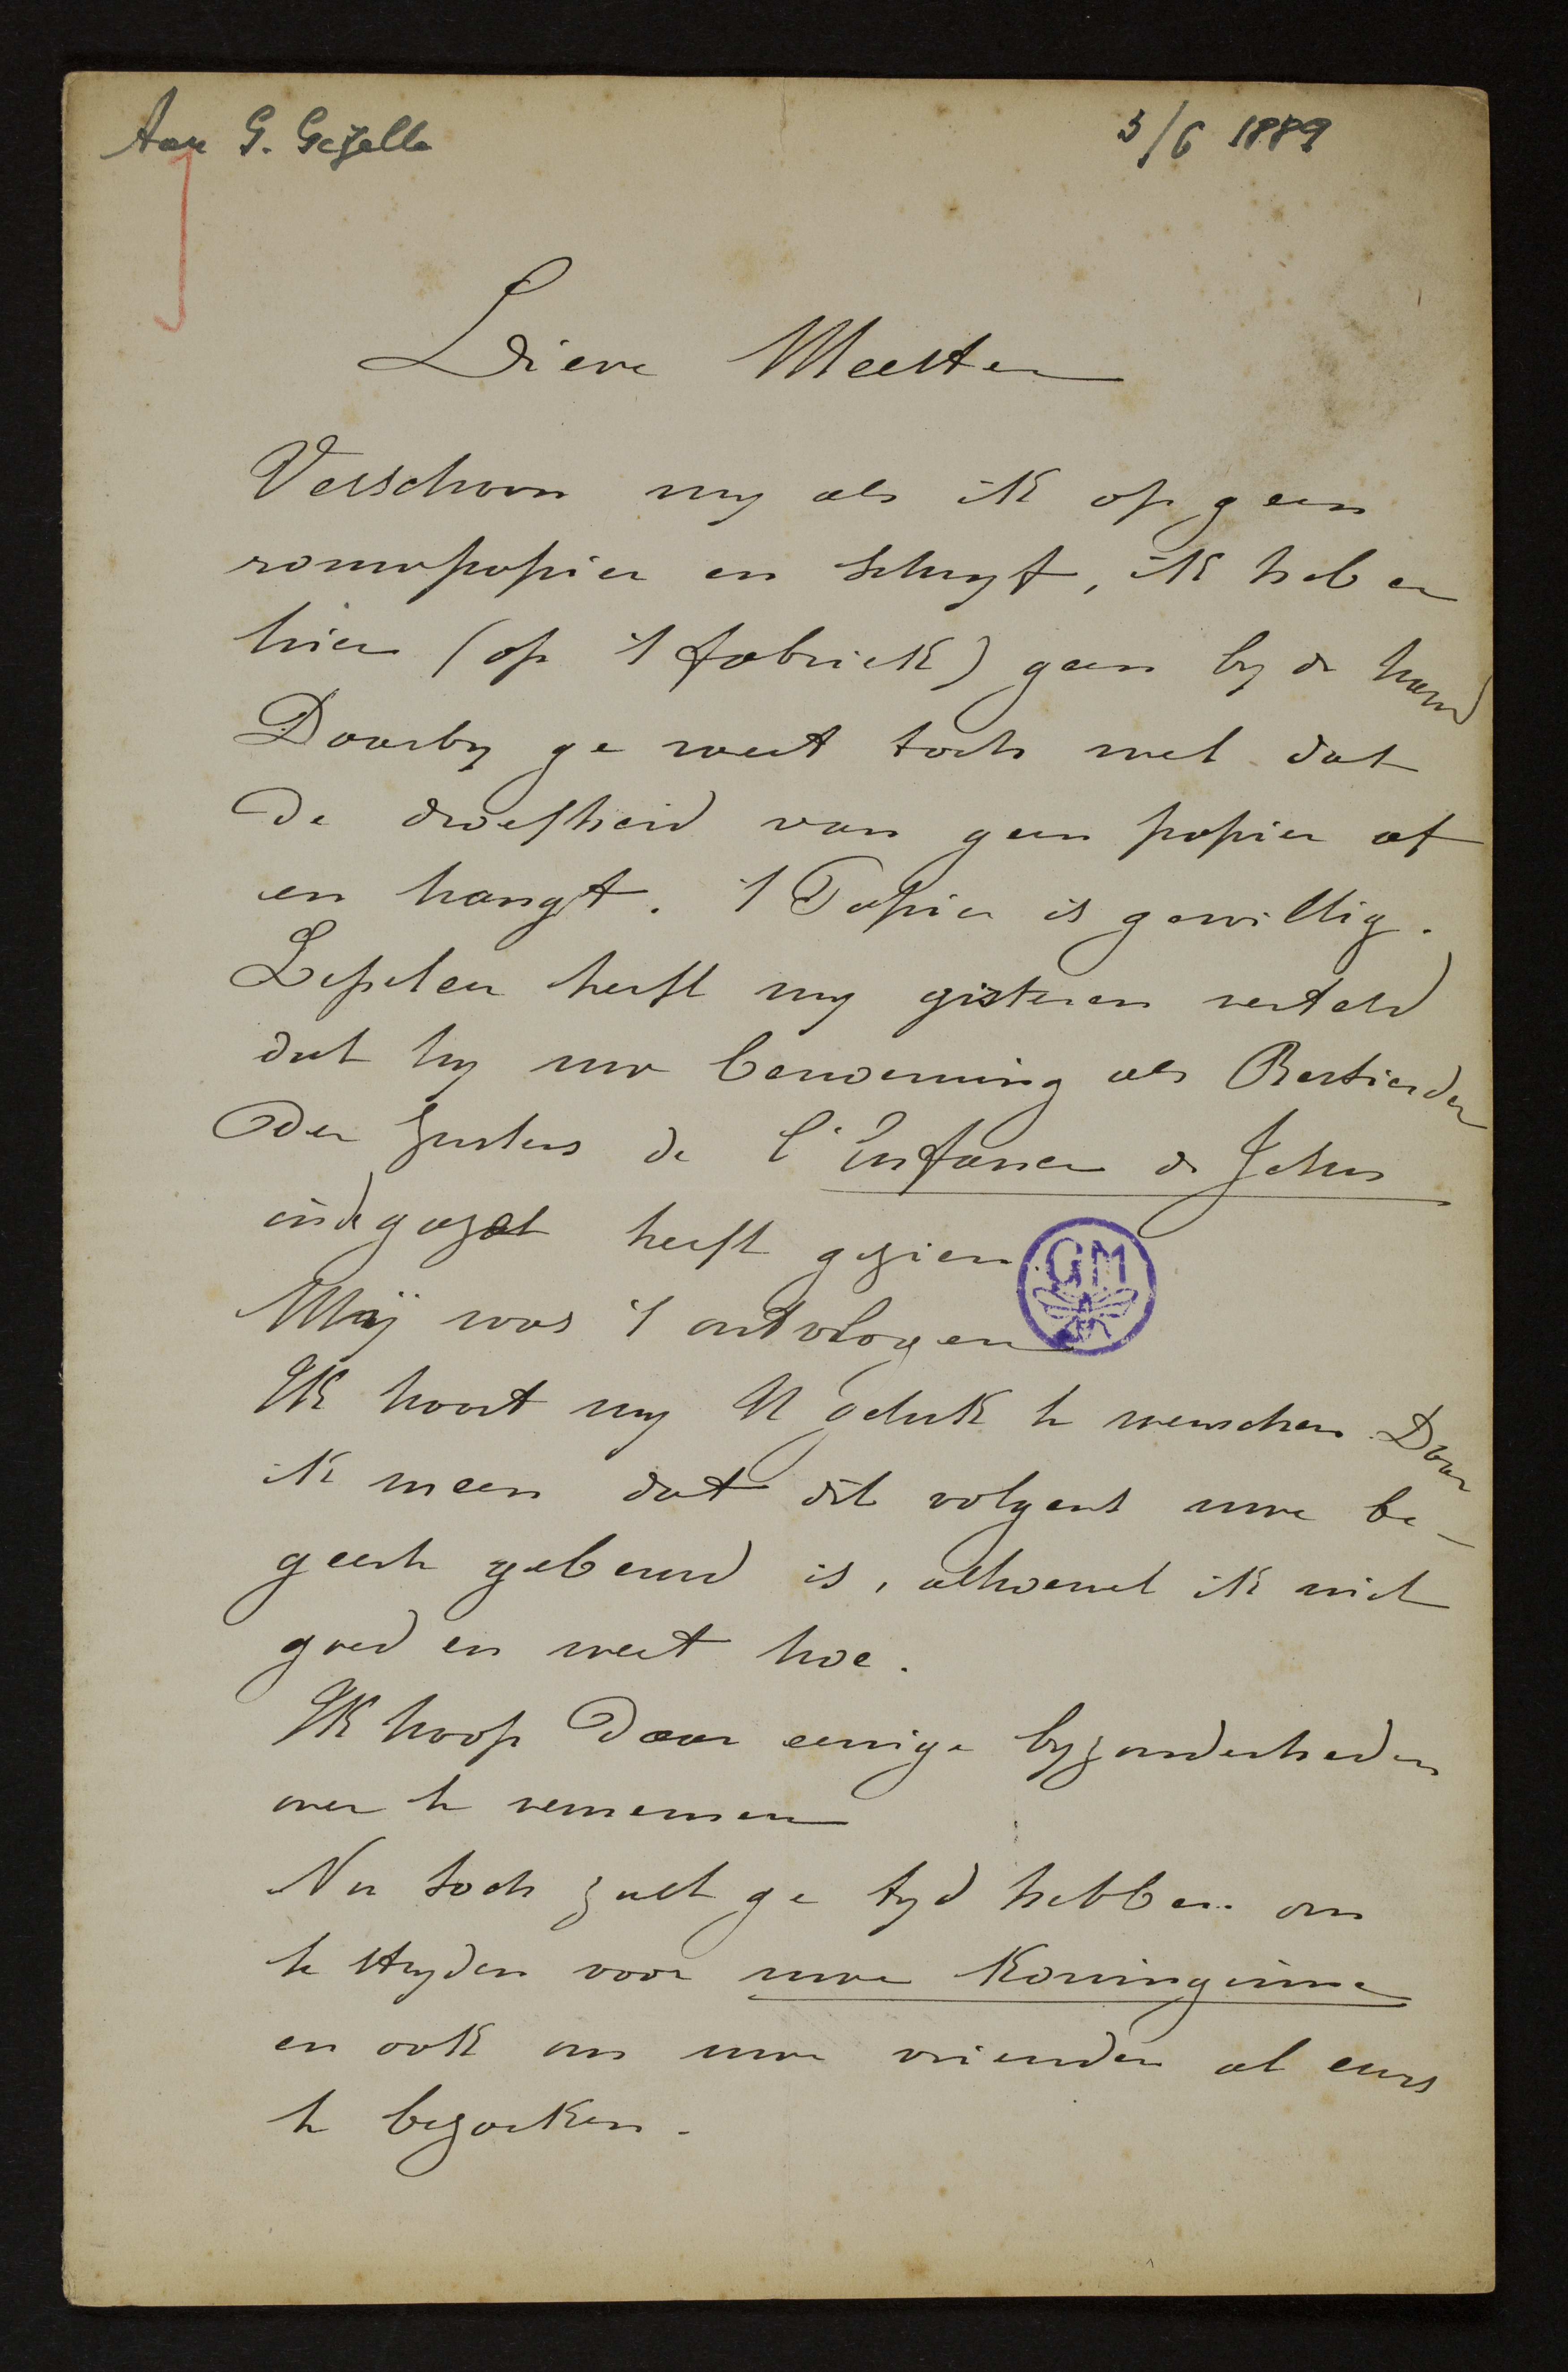 Aan G. Gezelle
5/6 1889
Lieve Meester
Verschoon my als ik op geen
rouwpapier en schryf, ik heb er
hier (op 't fabriek) geen by de hand
Daarby ge weet toch wel dat
de droefheid van geen papier af
en hangt. 't Papier is gewillig.
heeft my gisteren verteld
dat hy uw benoeming als Bestierder
der Zusters de l'Enfance de Jesus
in de gazet heeft gezien.
GM
Mij was 't ontvlogen
Ik haast my U geluk te wenschen Daar
ik meen dat dit volgens uwe be-
geerte gebeurd is, alhoewel ik niet
goed en weet hoe.
Ik hoop daar eenige byzonderheden
over te vernemen
Nu toch zult ge tyd hebben om
te stryden voor uwe Koninginne
en ook om uwe vrienden al eens
te bezoeken.